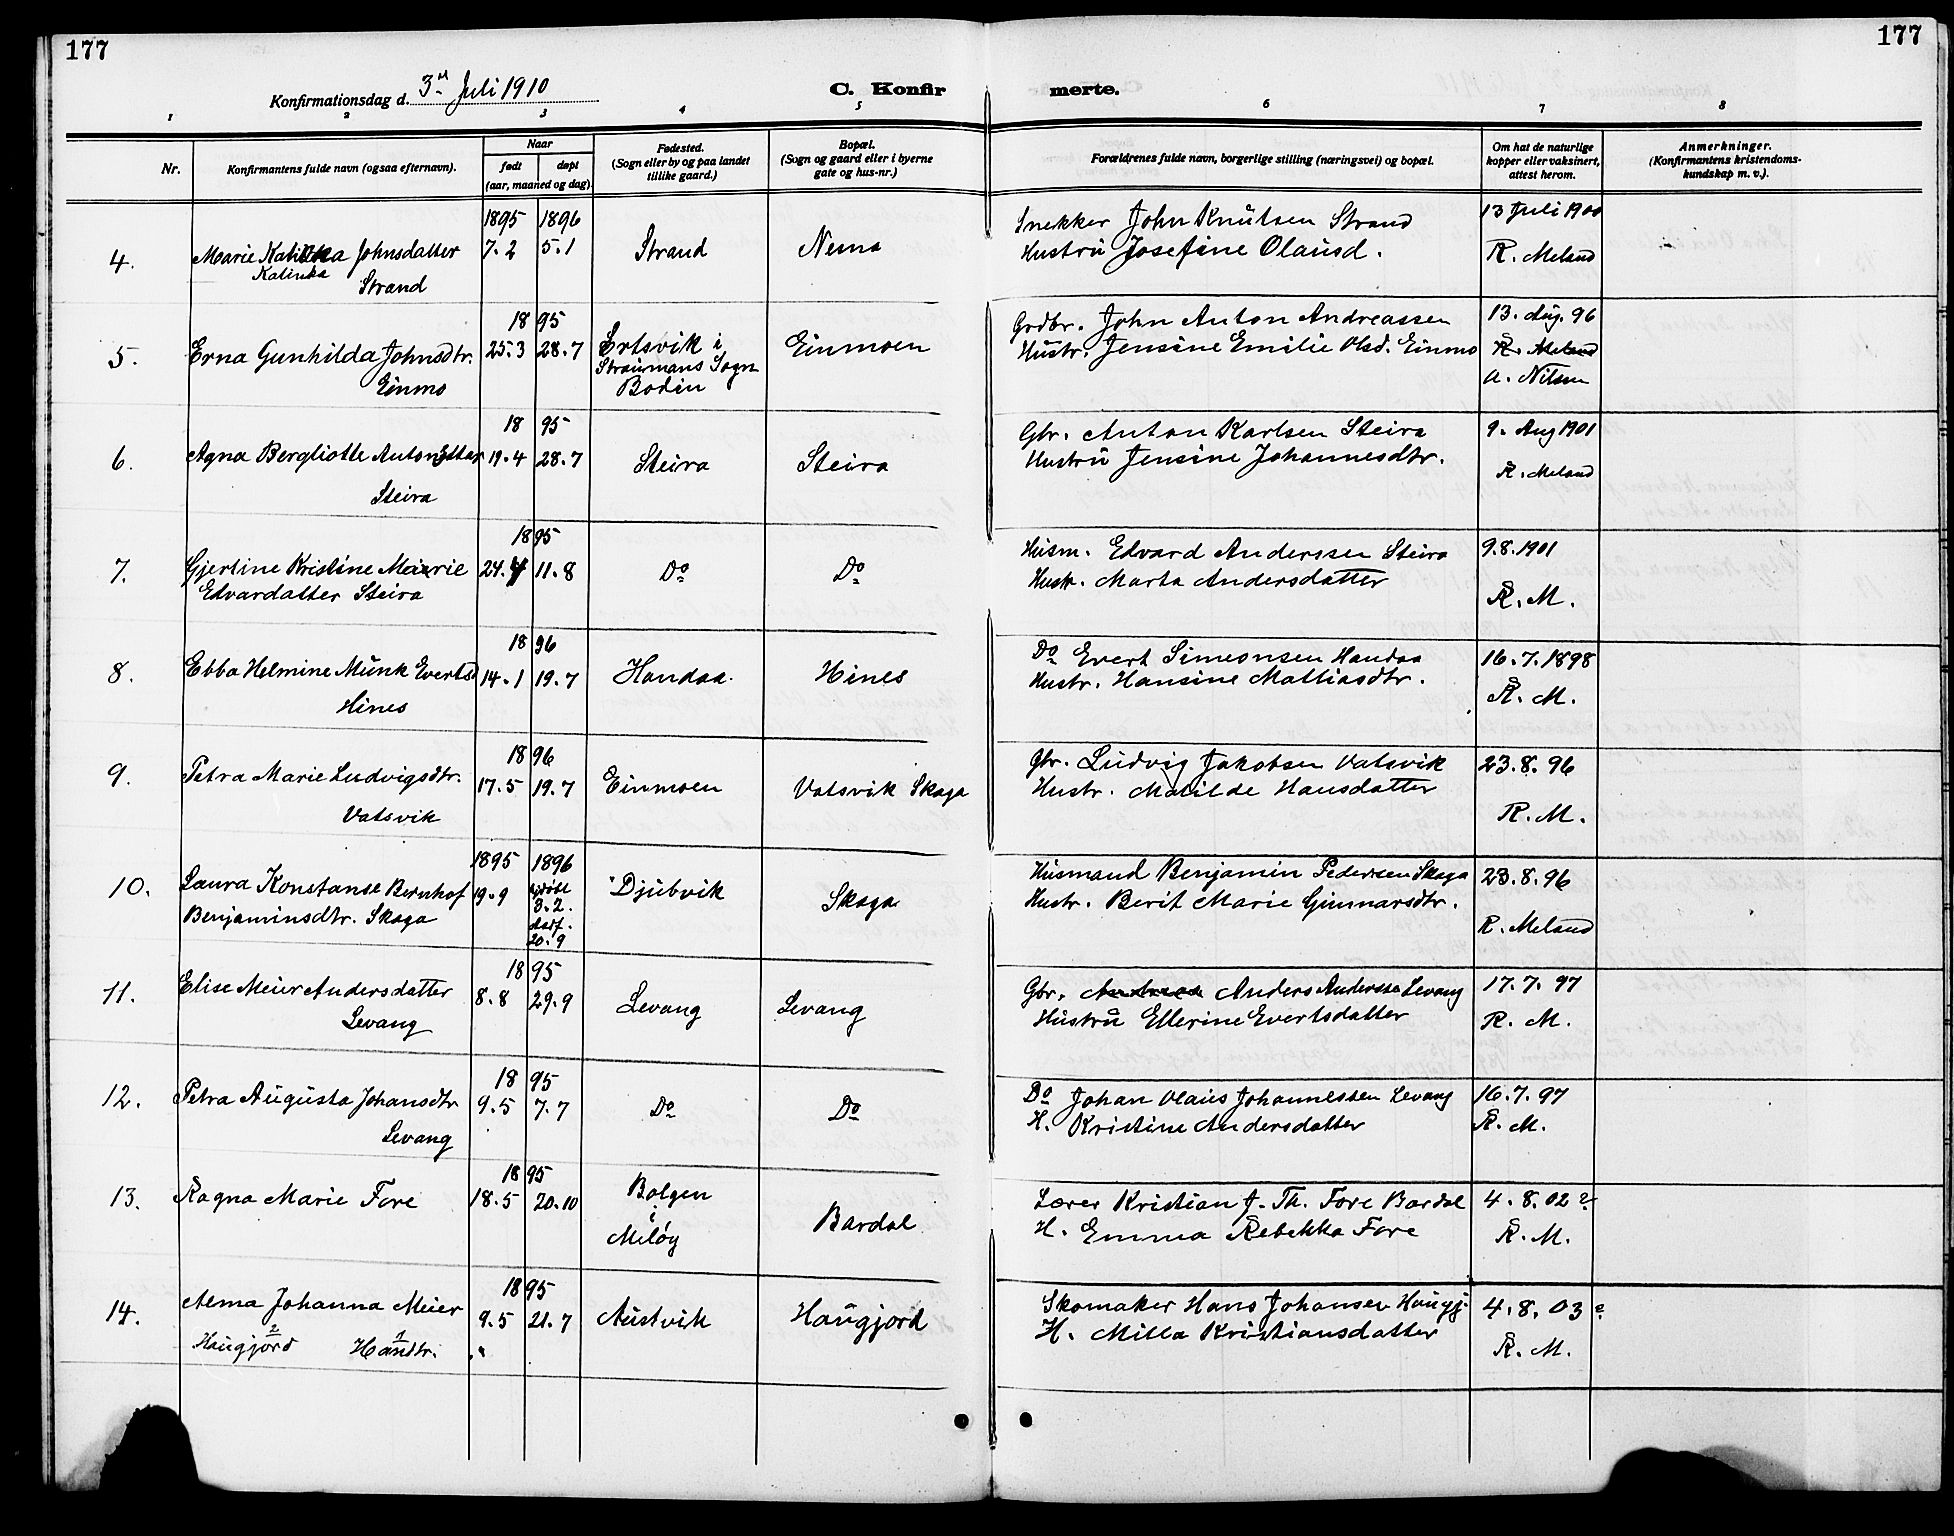 177
177
Konfirmationsdag d. 3. Juli 1910
C. Konfirmerte.
1 2 3 4 5 6 7 8
Nr.
Konfirmantens fulde navn (ogsaa efternavn).
Naar
født døpt
(aar, maaned og dag)
Fødested.
(Sogn eller by og paa landet
tillike gaard.)
Bopæl.
(Sogn og gaard eller i byerne
gate og hus-nr.)
Forældrenes fulde navn, borgerlige stilling (næringsvei) og bopæl.
Om hat de naturlige
kopper eller vaksinert,
attest herom.
Anmerkninger.
(Konfirmantens kristendoms-
kundskap m. v.).
1895 1896 Snekker John Knutsen Strand 13 Juli 1900
4. Marie Johnsdatter 7.2 5.1 Strand Nesna Hustru Josefine Olausd. R. Meland
Kalinka Strand
18 95 Grdbr. John Anton Andreassen 13. Aug. 96
5. Erna Gunhilda Johnsdtr. 25.3 28.7 Ertsvik i Einmoen Hustr. Jensine Emilie Olsd. Einmo R. Meland
Einmo Straumans Sogn A. Nilsen
Bodin
18 95 Gbr. Anton Karlsen Steira 9. Aug 1901
6. Agna Bergliotte Antonsdtter 19.4 28.7 Steira Steira Hustru Jensine Johannesdtr. R. Meland
Steira
18 95 Husm. Edvard Anderssen Steira 9.8.1901
7. Gjertine Kristine Marie 24.4 11.8 Do Do Hustr. Marta Andersdatter
Edvardatter Steira R. M.
18 96 Do Evert Simeonsen Handaa 16.7.1898
8. Ebba Helmine Munk Evertsd 14.1 19.7 Handaa. Hines Hustr. Hansine Mattiasdtr. R. M.
Hines
18 96 Gbr. Ludvig Jakobsen Vatsvik 23.8.96
9. Petra Marie Ludvigsdtr. 17.5 19.7 Einmoen Vatsvik Skaga Hustr. Matilde Hansdatter
Vatsvik R. M.
1895 1896 Husmand Benjamin Pedersen Skaga 23.8.96
10. Laura Konstanse Bernhof 19.9 3.2. Djubvik Skaga Hustr. Berit Marie Gunnarsdtr.
Benjaminsdtr. Skaga 20.9 R. Meland
18 95 Gbr. Anders Anderssen Levang 17.7.97
11. Elise Meier Andersdatter 8.8 29.9 Levang Levang Hustru Ellerine Evertsdatter R. M.
Levang
18 95 Do Johan Olaus Johannessen Levang 16.7.97
12. Petra Augusta Johansdtr 9.5 7.7 Do Do H. Kristine Andersdatter R. M.
Levang
18 95 Bolgen Lærer Kristian J. Th. Fore Bardal 4.8.02
13. Ragna Marie Fore 18.5 20.10 i Bardal H. Emma Rebekka Fore R. M.
Meløy
18 95 Skomaker Hans Johansen Haugj. 4.8.03
14. Alma Johanna Meier 9.5 21.7 Austvik Haugjord H. Milla Kristiansdatter
Haugjord Handtr. R. M.